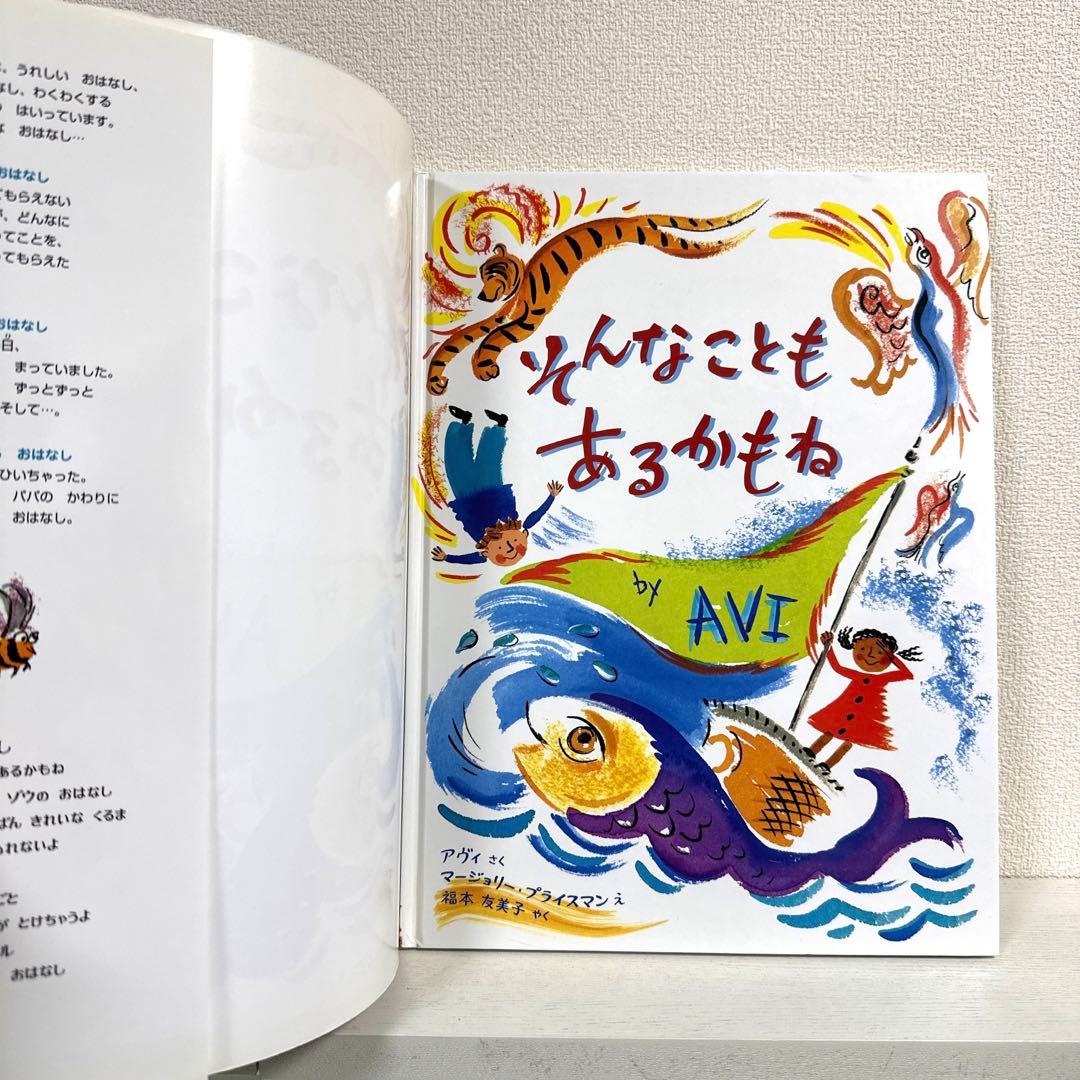 うれしい おはなし、
なし、わくわくする
はいっています。
な おはなし…
おはなし
てもらえない
が、どんなに
ってことを、
ってもらえた
おはなし
日、
まっていました。
ずっとずっと
そして…。
おはなし
ひいちゃった。
パパの かわりに
おはなし。
し
あるかもね
ゾウの おはなし
ばん きれいな くるま
れないよ
ごと
が とけちゃうよ
ル
おはなし
そんなことも
あるかもね
by AVI
アヴィ さく
マージョリー・プライスマン え
福本 友美子 やく